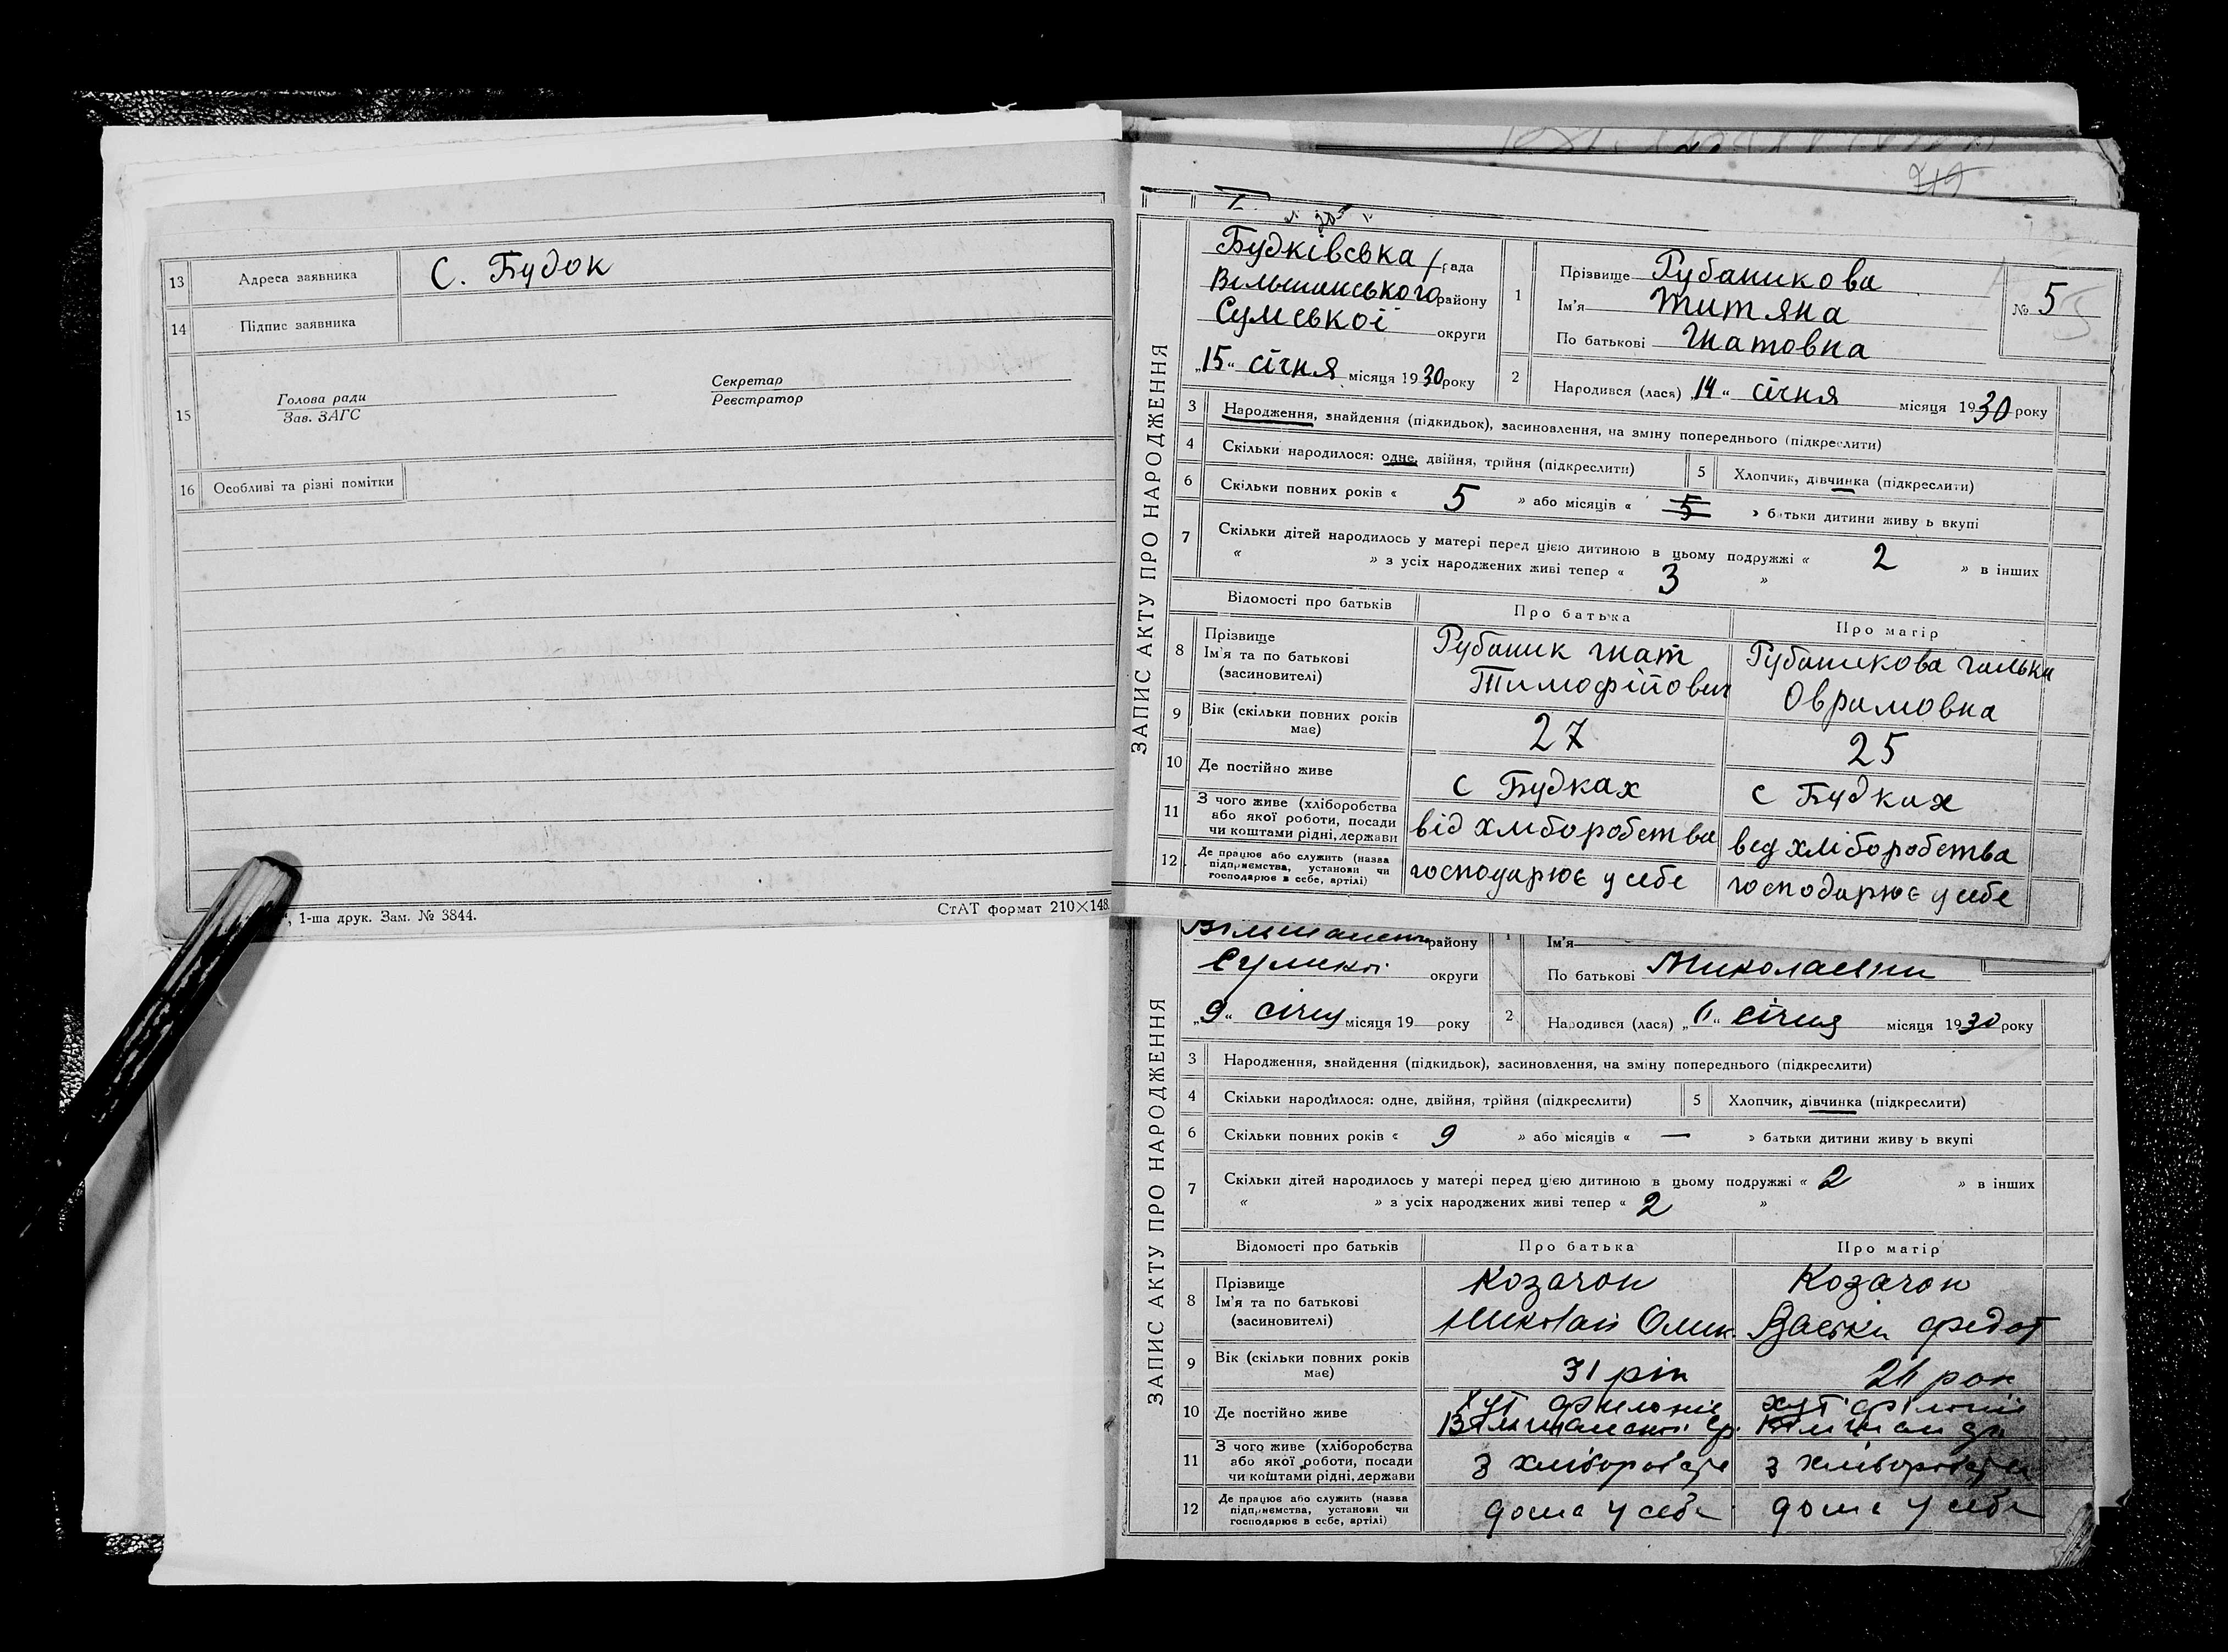 13 Адреса заявника С. Будок
14 Підпис заявника
15 Голова ради
Зав. ЗАГС
Секретар
Реєстратор
16 Особливі та різні помітки
1-ша друк. Зам. № 3844.
СтАТ формат 210×148.
ЗАПИС АКТУ ПРО НАРОДЖЕННЯ
Будківська рада
Вільшанського району
Сумської округи
„15“ січня місяця 1930 року
1 Прізвище Рубаникова
Ім'я Титяна
По батькові Гнатовна
№ 5
2 Народився (лася) „14“ січня місяця 1930 року
3 Народження, знайдення (підкидьок), засиновлення, на зміну попереднього (підкреслити)
4 Скільки народилося: одне, двійня, трійня (підкреслити)
5 Хлопчик, дівчинка (підкреслити)
6 Скільки повних років « 5 » або місяців « 5 » батьки дитини живуть вкупі
7 Скільки дітей народилось у матері перед цією дитиною в цьому подружжі « 2 » в інших
« » з усіх народжених живі тепер « 3 »
Відомості про батьків Про батька Про матір
8 Прізвище
Ім'я та по батькові
(засиновителі)
Рубаник Гнат
Тимофійович
Рубаникова Галька
Оврамовна
9 Вік (скільки повних років
має)
27
25
10 Де постійно живе с Будках с Будках
11 З чого живе (хліборобства
або якої роботи, посади
чи коштами рідні, держави
від хліборобства
вед хліборобства
12 Де працює або служить (назва
підприємства, установи чи
господарює в себе, артілі)
господарює у себе
господарює у себе
ЗАПИС АКТУ ПРО НАРОДЖЕННЯ
району
округи
„9“ січня місяця 19 року
1 Ім'я
По батькові Миколаевни
2 Народився (лася) січня місяця 1930 року
3 Народження, знайдення (підкидьок), засиновлення, на зміну попереднього (підкреслити)
4 Скільки народилося: одне, двійня, трійня (підкреслити)
5 Хлопчик, дівчинка (підкреслити)
6 Скільки повних років « 9 » або місяців « — » батьки дитини живуть вкупі
7 Скільки дітей народилось у матері перед цією дитиною в цьому подружжі « 2 » в інших
« » з усіх народжених живі тепер « 2 »
Відомості про батьків Про батька Про матір
8 Прізвище
Ім'я та по батькові
(засиновителі)
Козачок
Миколай
Козачок
Васька Федот
9 Вік (скільки повних років
має)
31 рік
рок
10 Де постійно живе
хут
хут
11 З чого живе (хліборобства
або якої роботи, посади
чи коштами рідні, держави
з
з
12 Де працює або служить (назва
підприємства, установи чи
господарює в себе, артілі)
дома у себе
дома у себе